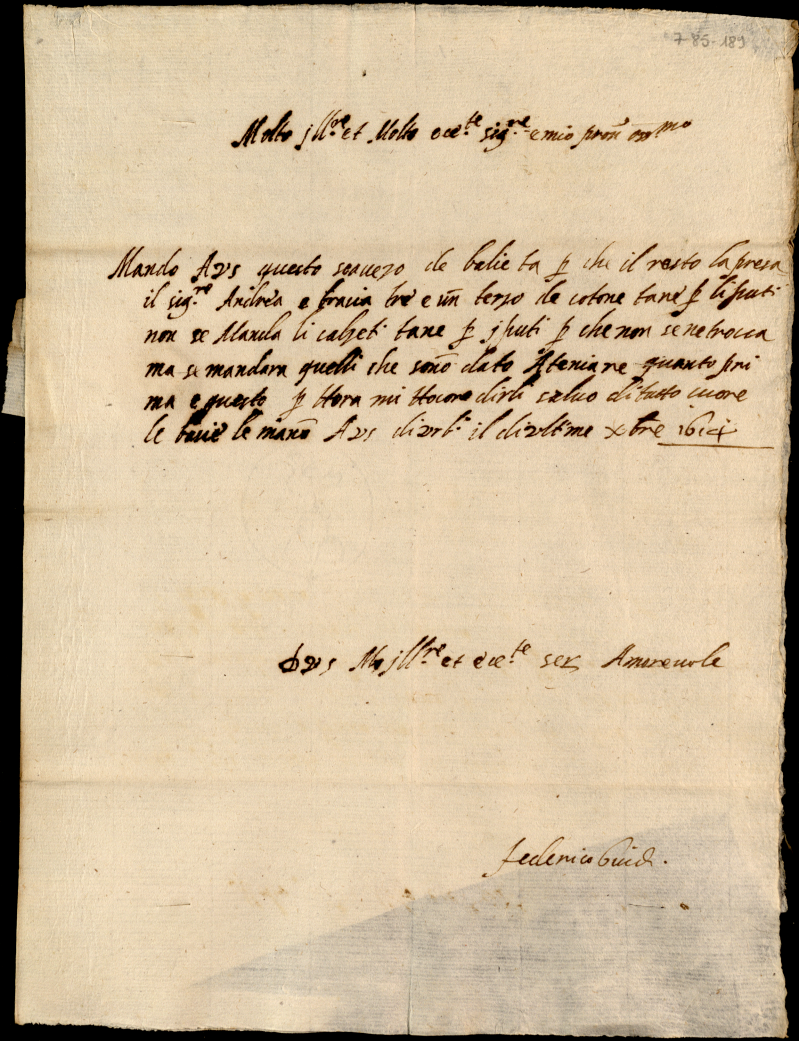 7 85-189
Molto jll.re et Molto ecc.te sig.re e mio pron oss.mo
Mando A vs questo scavezo de balieta p che il resto la presa
il sig.re Andrea e bracia tre e un terso de cotone tane p li puti
non se Manda li calzeti tane p j puti p che non se ne trocca
ma se mandara quelli che sono dato A teniare quanto pri
ma e questo p Hora mi Hocore dirli salvo di tutto cuore
le bacio le mano A vs di il di ultime xbre
D vs Mo jll.re et ecc.te ser Amorevole
federico Guidi.